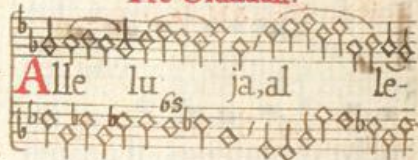 Alle lu ja, al le-
6 5